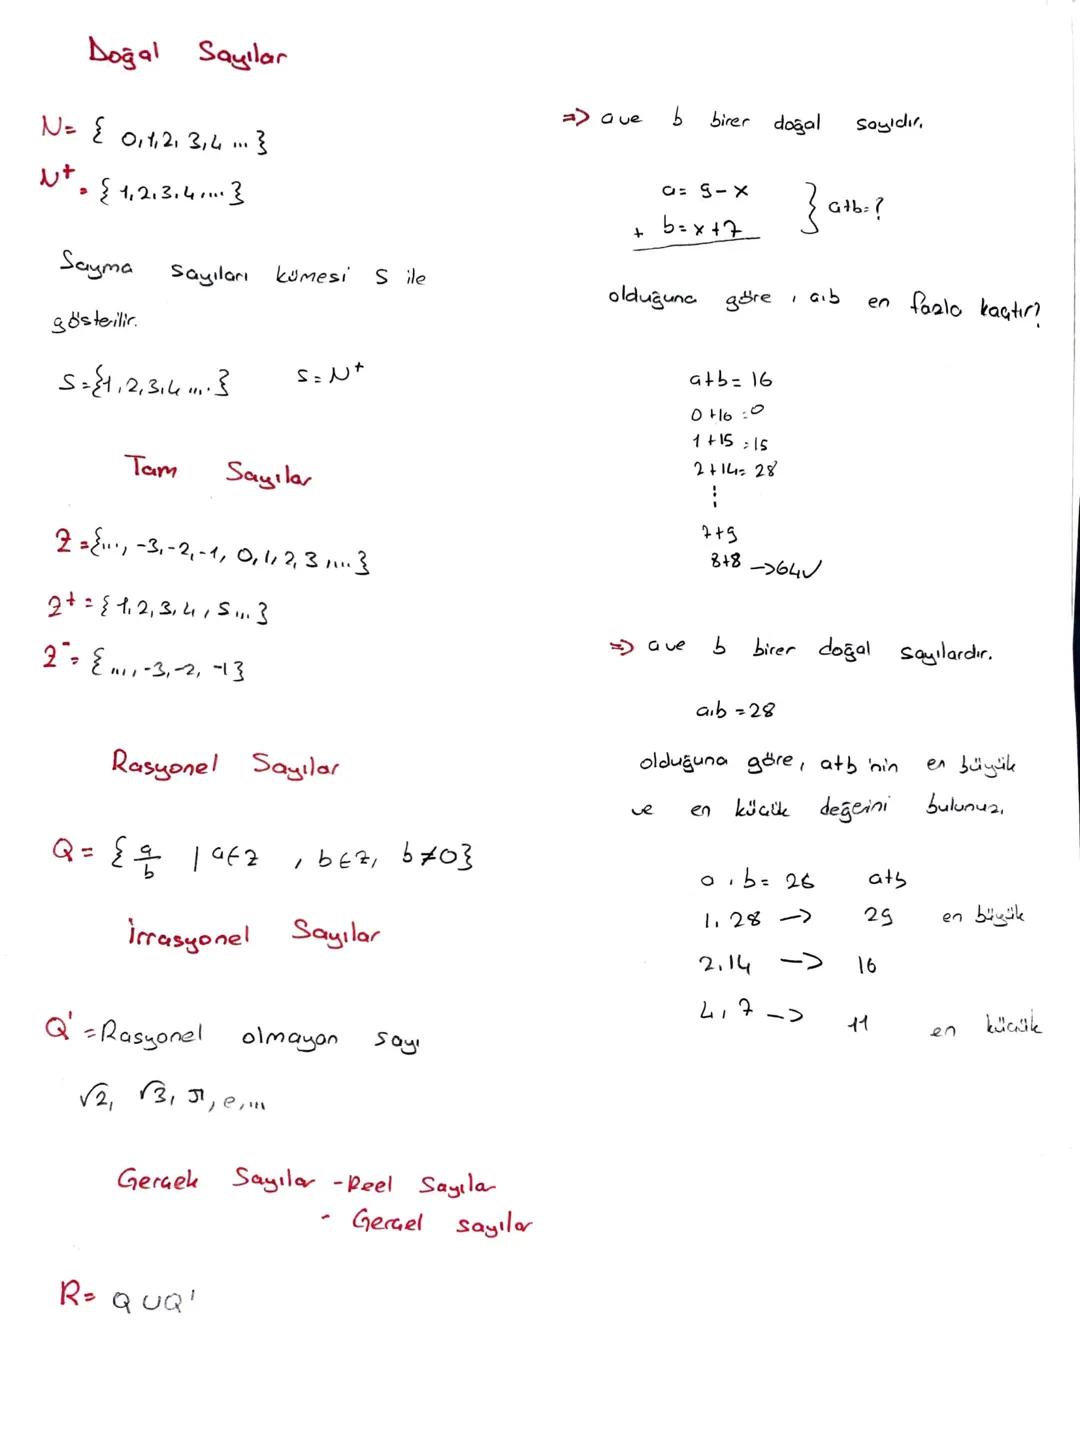 Doğal Sayılar
N= { 0,1,2,3,4 ... }
N⁺ = { 1,2,3,4, .... }
Sayma sayıları kümesi S ile
gösterilir.
S={1,2,3,4 .... } S=N⁺
Tam Sayılar
Z ={..., -3,-2,-1, 0,1,2,3 ..... }
Z⁺ = { 1,2,3,4,5... }
Z⁻ = { ..., -3,-2, -1}
Rasyonel Sayılar
Q = { a/b | a∈Z , b∈Z, b≠0}
İrrasyonel Sayılar
Q' =Rasyonel olmayan sayı
√2, √3, π, e, ...
Gerçek Sayılar -Reel Sayılar
- Gerçel sayılar
R= Q∪Q'
=> a ve b birer doğal sayıdır.
a= 9-x
+ b=x+7 } a+b=?
olduğuna göre, a.b en fazla kaçtır?
a+b= 16
0+16 =0
1+15 =15
2+14= 28
⋮
7+9
8+8 ->64✓
=> a ve b birer doğal sayılardır.
a.b =28
olduğuna göre, a+b 'nin en büyük
ve en küçük değerini bulunuz.
a.b= 26 a+b
1.28 -> 29 en büyük
2.14 -> 16
4.7 -> 11 en küçük